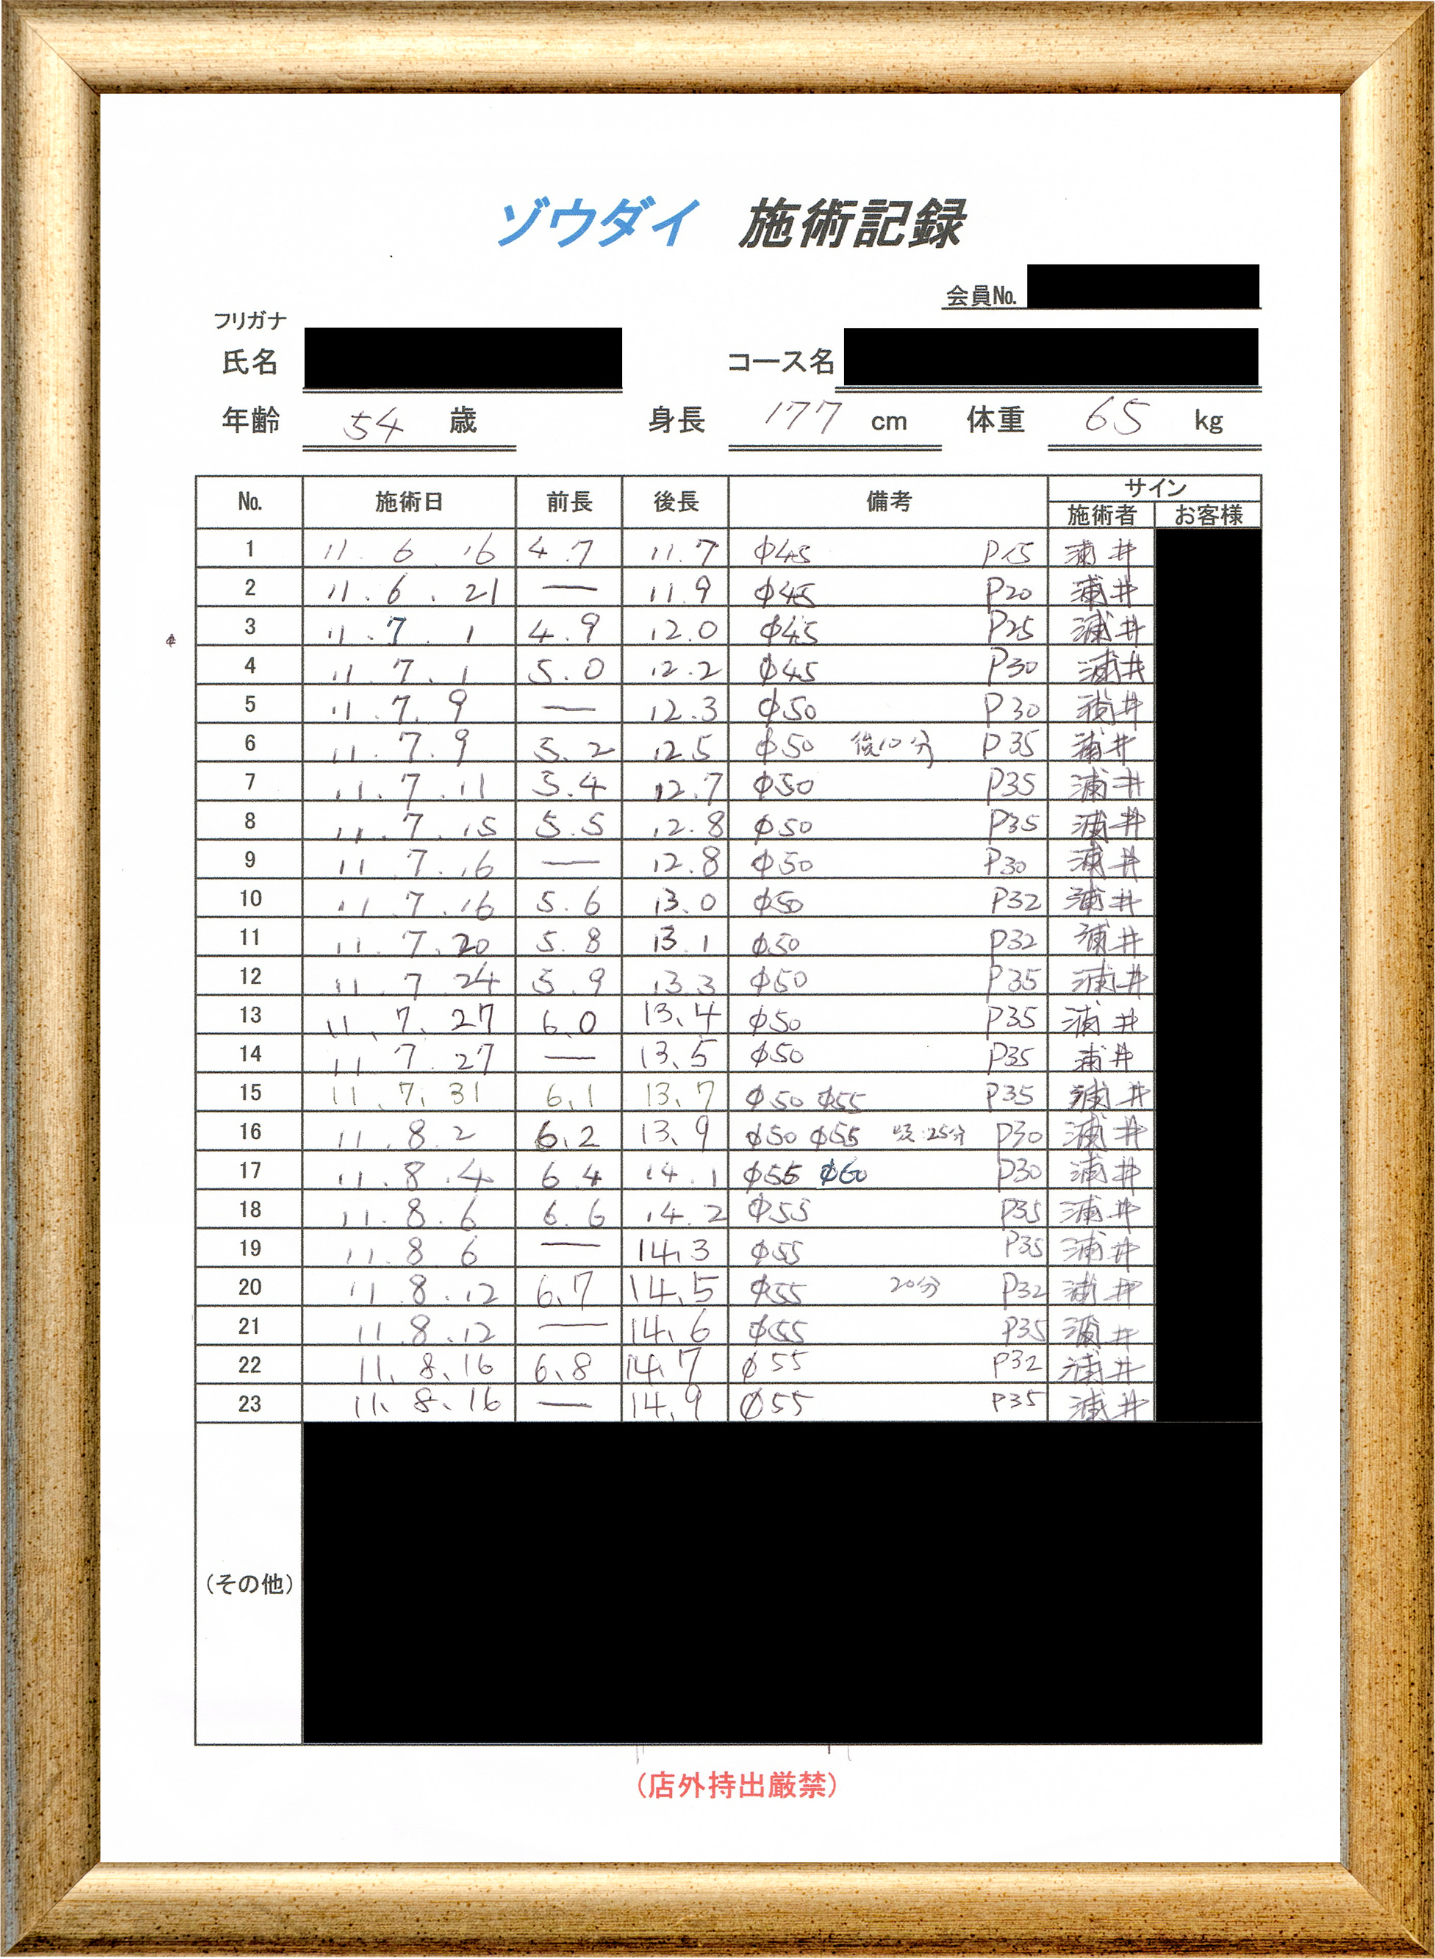 ゾウダイ 施術記録
会員No.
フリガナ
氏名 コース名
年齢 54 歳 身長 177 cm 体重 65 kg
No. 施術日 前長 後長 備考 サイン
施術者 お客様
1 11.6.16 4.7 11.7 φ45 P15 浦井
2 11.6.21 — 11.9 φ45 P20 浦井
3 11.7.1 4.9 12.0 φ45 P25 浦井
4 11.7.1 5.0 12.2 φ45 P30 浦井
5 11.7.9 — 12.3 φ50 P30 浦井
6 11.7.9 5.2 12.5 φ50 後10分 P35 浦井
7 11.7.11 5.4 12.7 φ50 P35 浦井
8 11.7.15 5.5 12.8 φ50 P35 浦井
9 11.7.16 — 12.8 φ50 P30 浦井
10 11.7.16 5.6 13.0 φ50 P32 浦井
11 11.7.20 5.8 13.1 φ50 P32 浦井
12 11.7.24 5.9 13.3 φ50 P35 浦井
13 11.7.27 6.0 13.4 φ50 P35 浦井
14 11.7.27 — 13.5 φ50 P35 浦井
15 11.7.31 6.1 13.7 φ50 φ55 P35 浦井
16 11.8.2 6.2 13.9 φ50 φ55 25分 P30 浦井
17 11.8.4 6.4 14.1 φ55 φ60 P30 浦井
18 11.8.6 6.6 14.2 φ55 P35 浦井
19 11.8.6 — 14.3 φ55 P35 浦井
20 11.8.12 6.7 14.5 φ55 20分 P32 浦井
21 11.8.12 — 14.6 φ55 P35 浦井
22 11.8.16 6.8 14.7 φ55 P32 浦井
23 11.8.16 — 14.9 φ55 P35 浦井
(その他)
(店外持出厳禁)